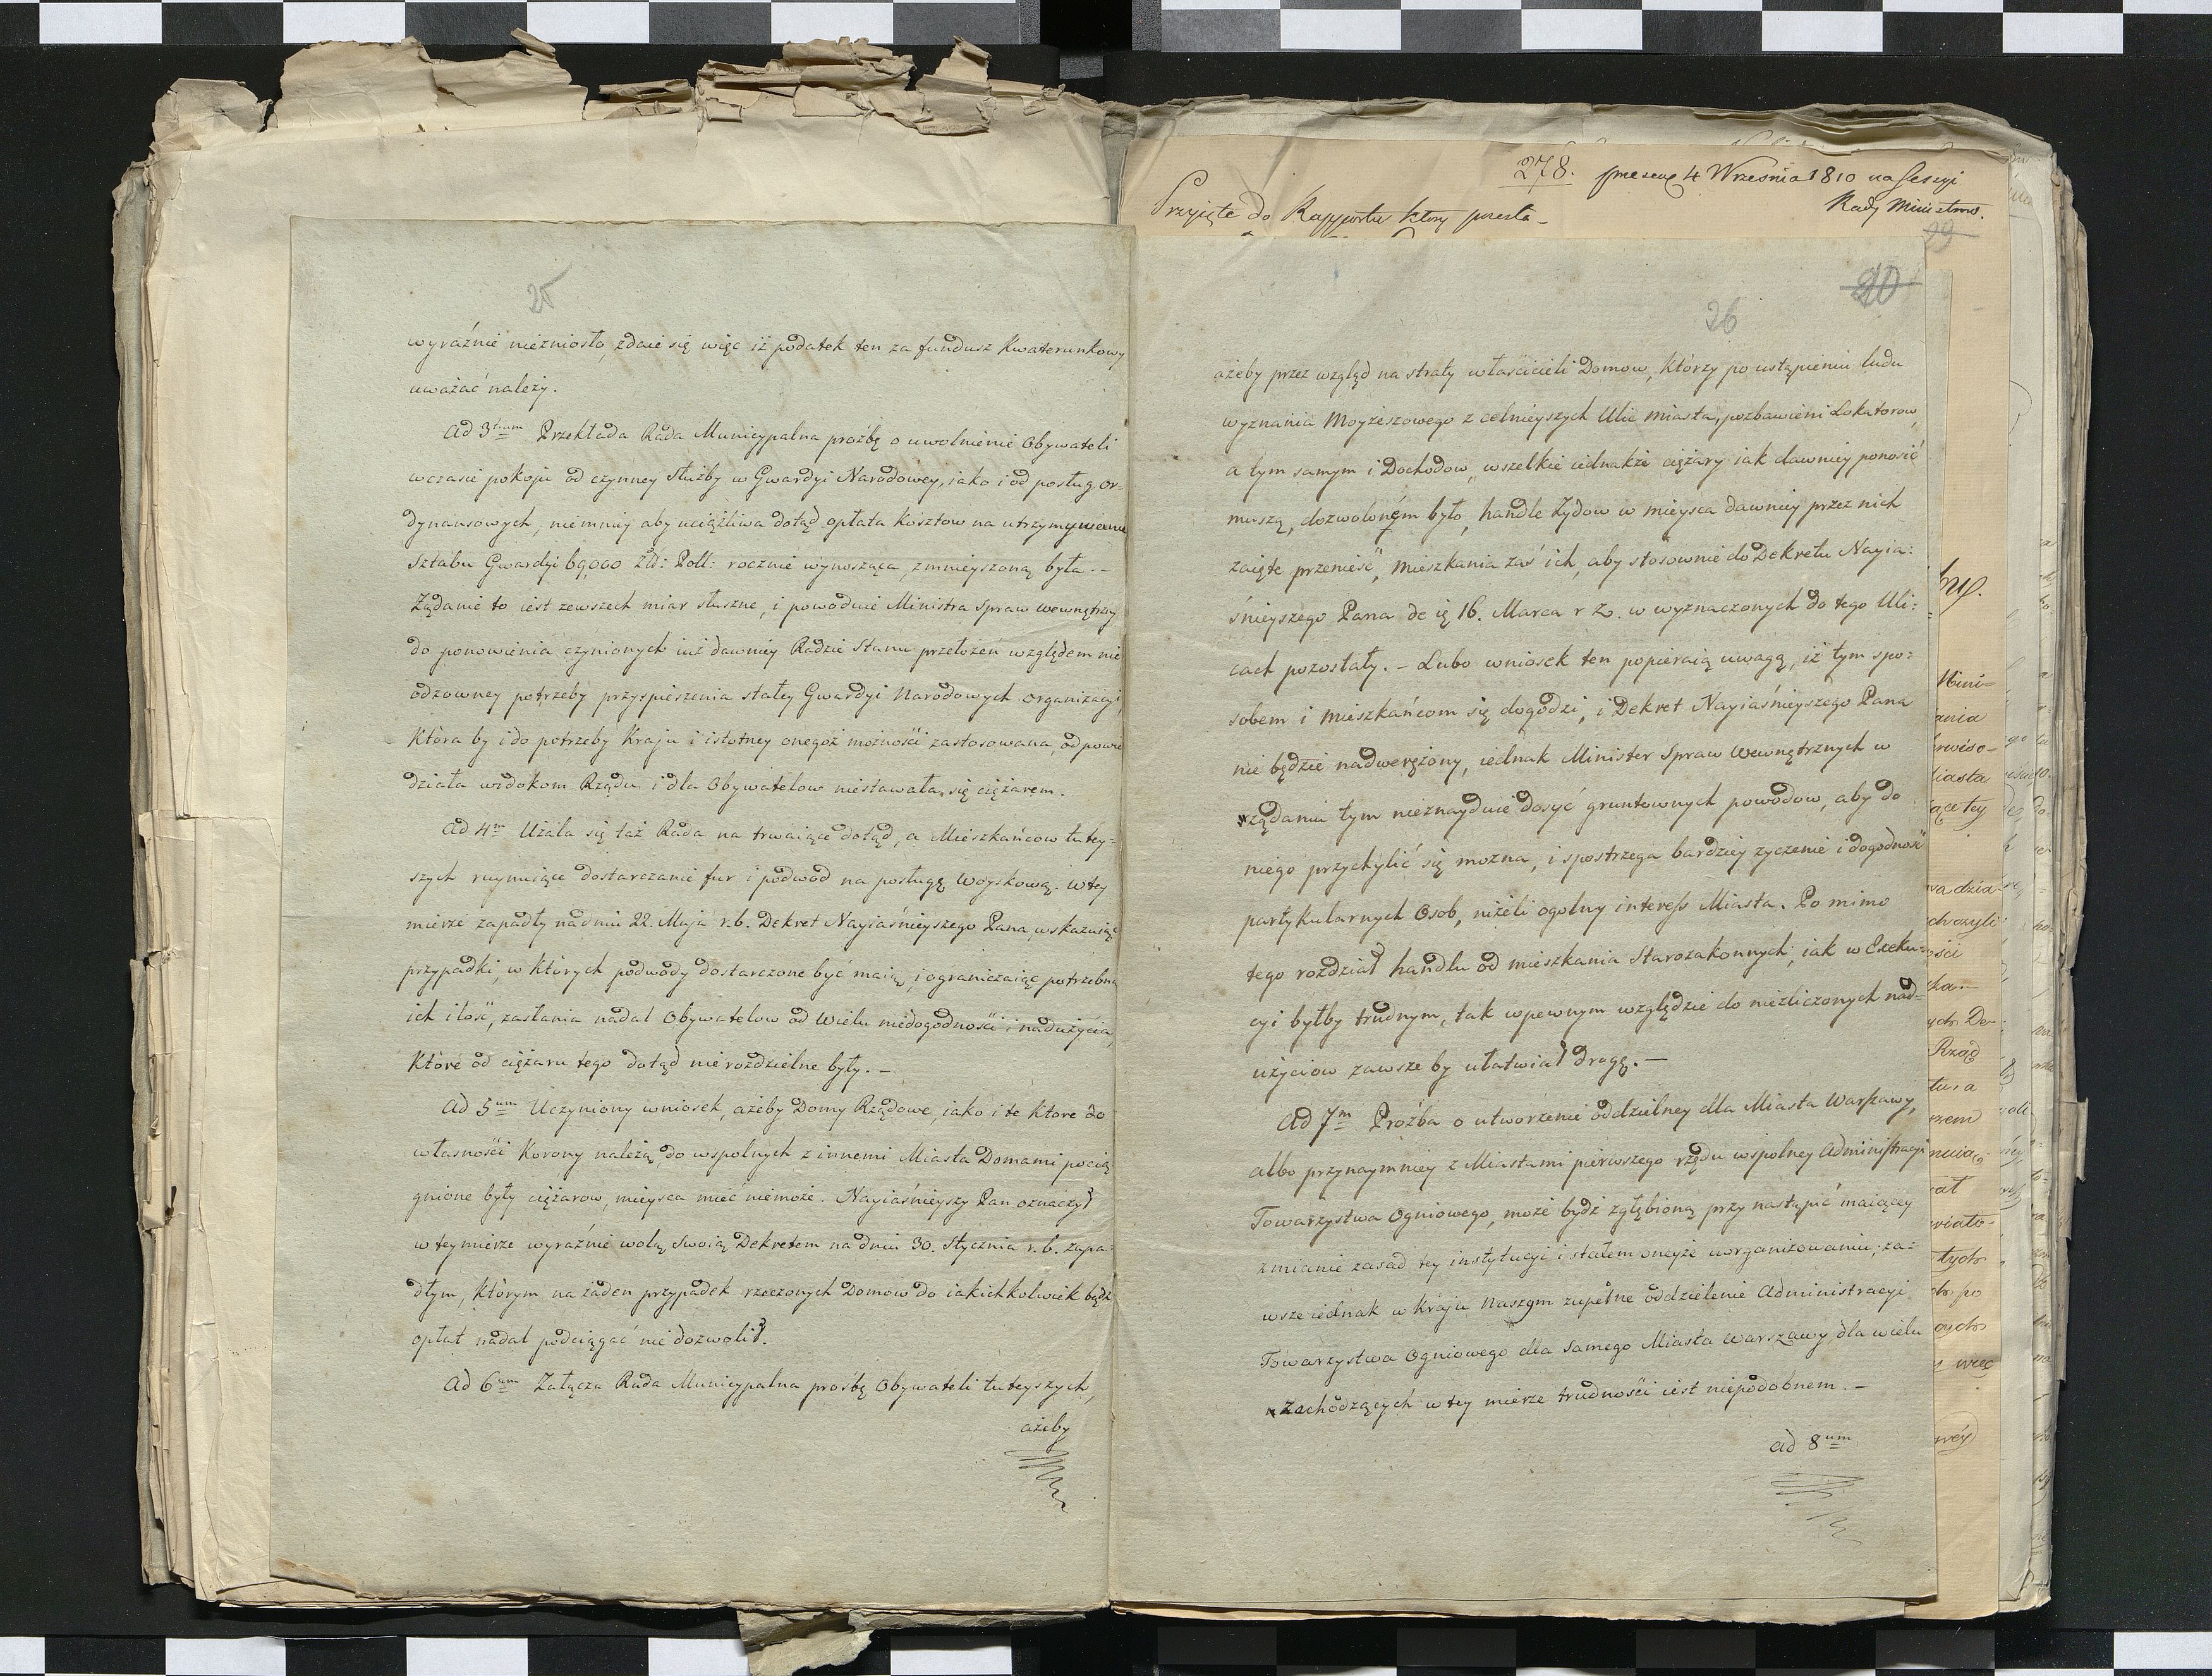 25
wyráźnie niezniosło, zdaie się więc iż podatek ten za fundusz Kwaterunkowy
uważać należy.
Ad 3tium Przekłada Rada Municypalna proźbę o uwolnienie Obywateli
w czasie pokoju od czynney służby w Gwardyi Narodowey, iako i od posług or-
dynansowych, niemniey aby uciążliwa dotąd opłata kosztow na utrzymywanie
Sztabu Gwardyi 69,000 Złł: Poll: rocznie wynosząca, zmnieyszoną była. –
Żądanie to iest zewszech miar słuszne, i powoduie Ministra Spraw Wewnętrzny
do ponowienia czynionych iuż dawniey Radzie Stanu przełożeń względem nie
odzowney potrzeby przyspieszenia stałey Gwardyi Narodowych organizacyi,
która by i do potrzeby Kraju i istotney onegoż możności zastosowana, odpowie
działa widokom Rządu i dla Obywatelow niestawała się ciężarem.
Ad 4m Użala się taż Rada na trwaiące dotąd, a Mieszkańcow tutey-
szych ruynuiące dostarczanie fur i podwod na posługę Woyskową. W tey
mierze zapadły na dniu 22. Maja r. b. Dekret Nayiaśnieyszego Pana, wskazuiąc
przypadki, w których podwody dostarczone być maią, i ograniczaiąc potrzebną
ich ilość, zasłania nadal Obywatelow od wielu niedogodności i nadużycia,
które od ciężaru tego dotąd nierozdzielne były. –
Ad 5um Uczyniony wniosek, ażeby Domy Rządowe, iako i te ktore do
własności Korony należą, do wspolnych z innemi Miasta Domami pocią
gnione były ciężarow, mieysca mieć niemoże. Nayiaśnieyszy Pan oznaczył
w teymierze wyraźnie wolą swoią Dekretem na dniu 30. Stycznia r. b. zapa-
dłym, którym na żaden przypadek rzeczonych Domow do iakichkolwiek bądź
opłat nadal podciągać nie dozwolił.
Ad 6um Załącza Rada Municypalna prośbę Obywateli tuteyszych,
ażeby
278. 4 Września 1810 na Sessyi
Rady Ministrow.
Przyięte do Rapportu ktory przesła-
29
20
26
ażeby przez wzgląd na straty właścicieli Domow, którzy po ustąpieniu ludu
wyznania Moyżeszowego z celnieyszych Ulic miasta, pozbawieni Lokatorow,
a tym samym i Dochodow, wszelkie iednakże ciężary iak dawniey ponosić
muszą, dozwolonem było, handle Żydow w mieysca dawniey przez nich
zaięte przenieść, mieszkania zaś ich, aby stosownie do Dekretu Nayia:
śnieyszego Pana de 16. Marca r z. w wyznaczonych do tego Uli:
cach pozostały. – Lubo wniosek ten popieraią uwagą, iż tym spo:
sobem i mieszkańcom się dogodzi, i Dekret Nayiaśnieyszego Pana
nie będzie nadwerężony, iednak Minister Spraw Wewnętrznych w
żądaniu tym nieznayduie dosyć gruntownych powodow, aby do
niego przychylić się można, i spostrzega bardziey życzenie i dogodność
partykularnych Osob, niżeli ogolny interess Miasta. Po mimo
tego rozdział handlu od mieszkania Starozakonnych, iak w Exeku-
cyi byłby trudnym, tak w pewnym względzie do niezliczonych nad-
użyciow zawsze by ułatwiał drogę. –
Ad 7m Proźba o utworzenie oddzielney dla Miasta Warszawy,
albo przynaymniey z Miastami pierwszego rzędu wspolney Administracyi
Towarzystwa Ogniowego, może bydź zgłębioną przy nastąpić maiącey
zmianie zasad tey instytucyi i stałem oneyże uorganizowaniu; za-
wsze iednak w Kraju Naszym zupełne oddzielenie Administracyi
Towarzystwa Ogniowego dla samego Miasta Warszawy, dla wielu
zachodzących w tey mierze trudności iest niepodobnem. –
ad 8um